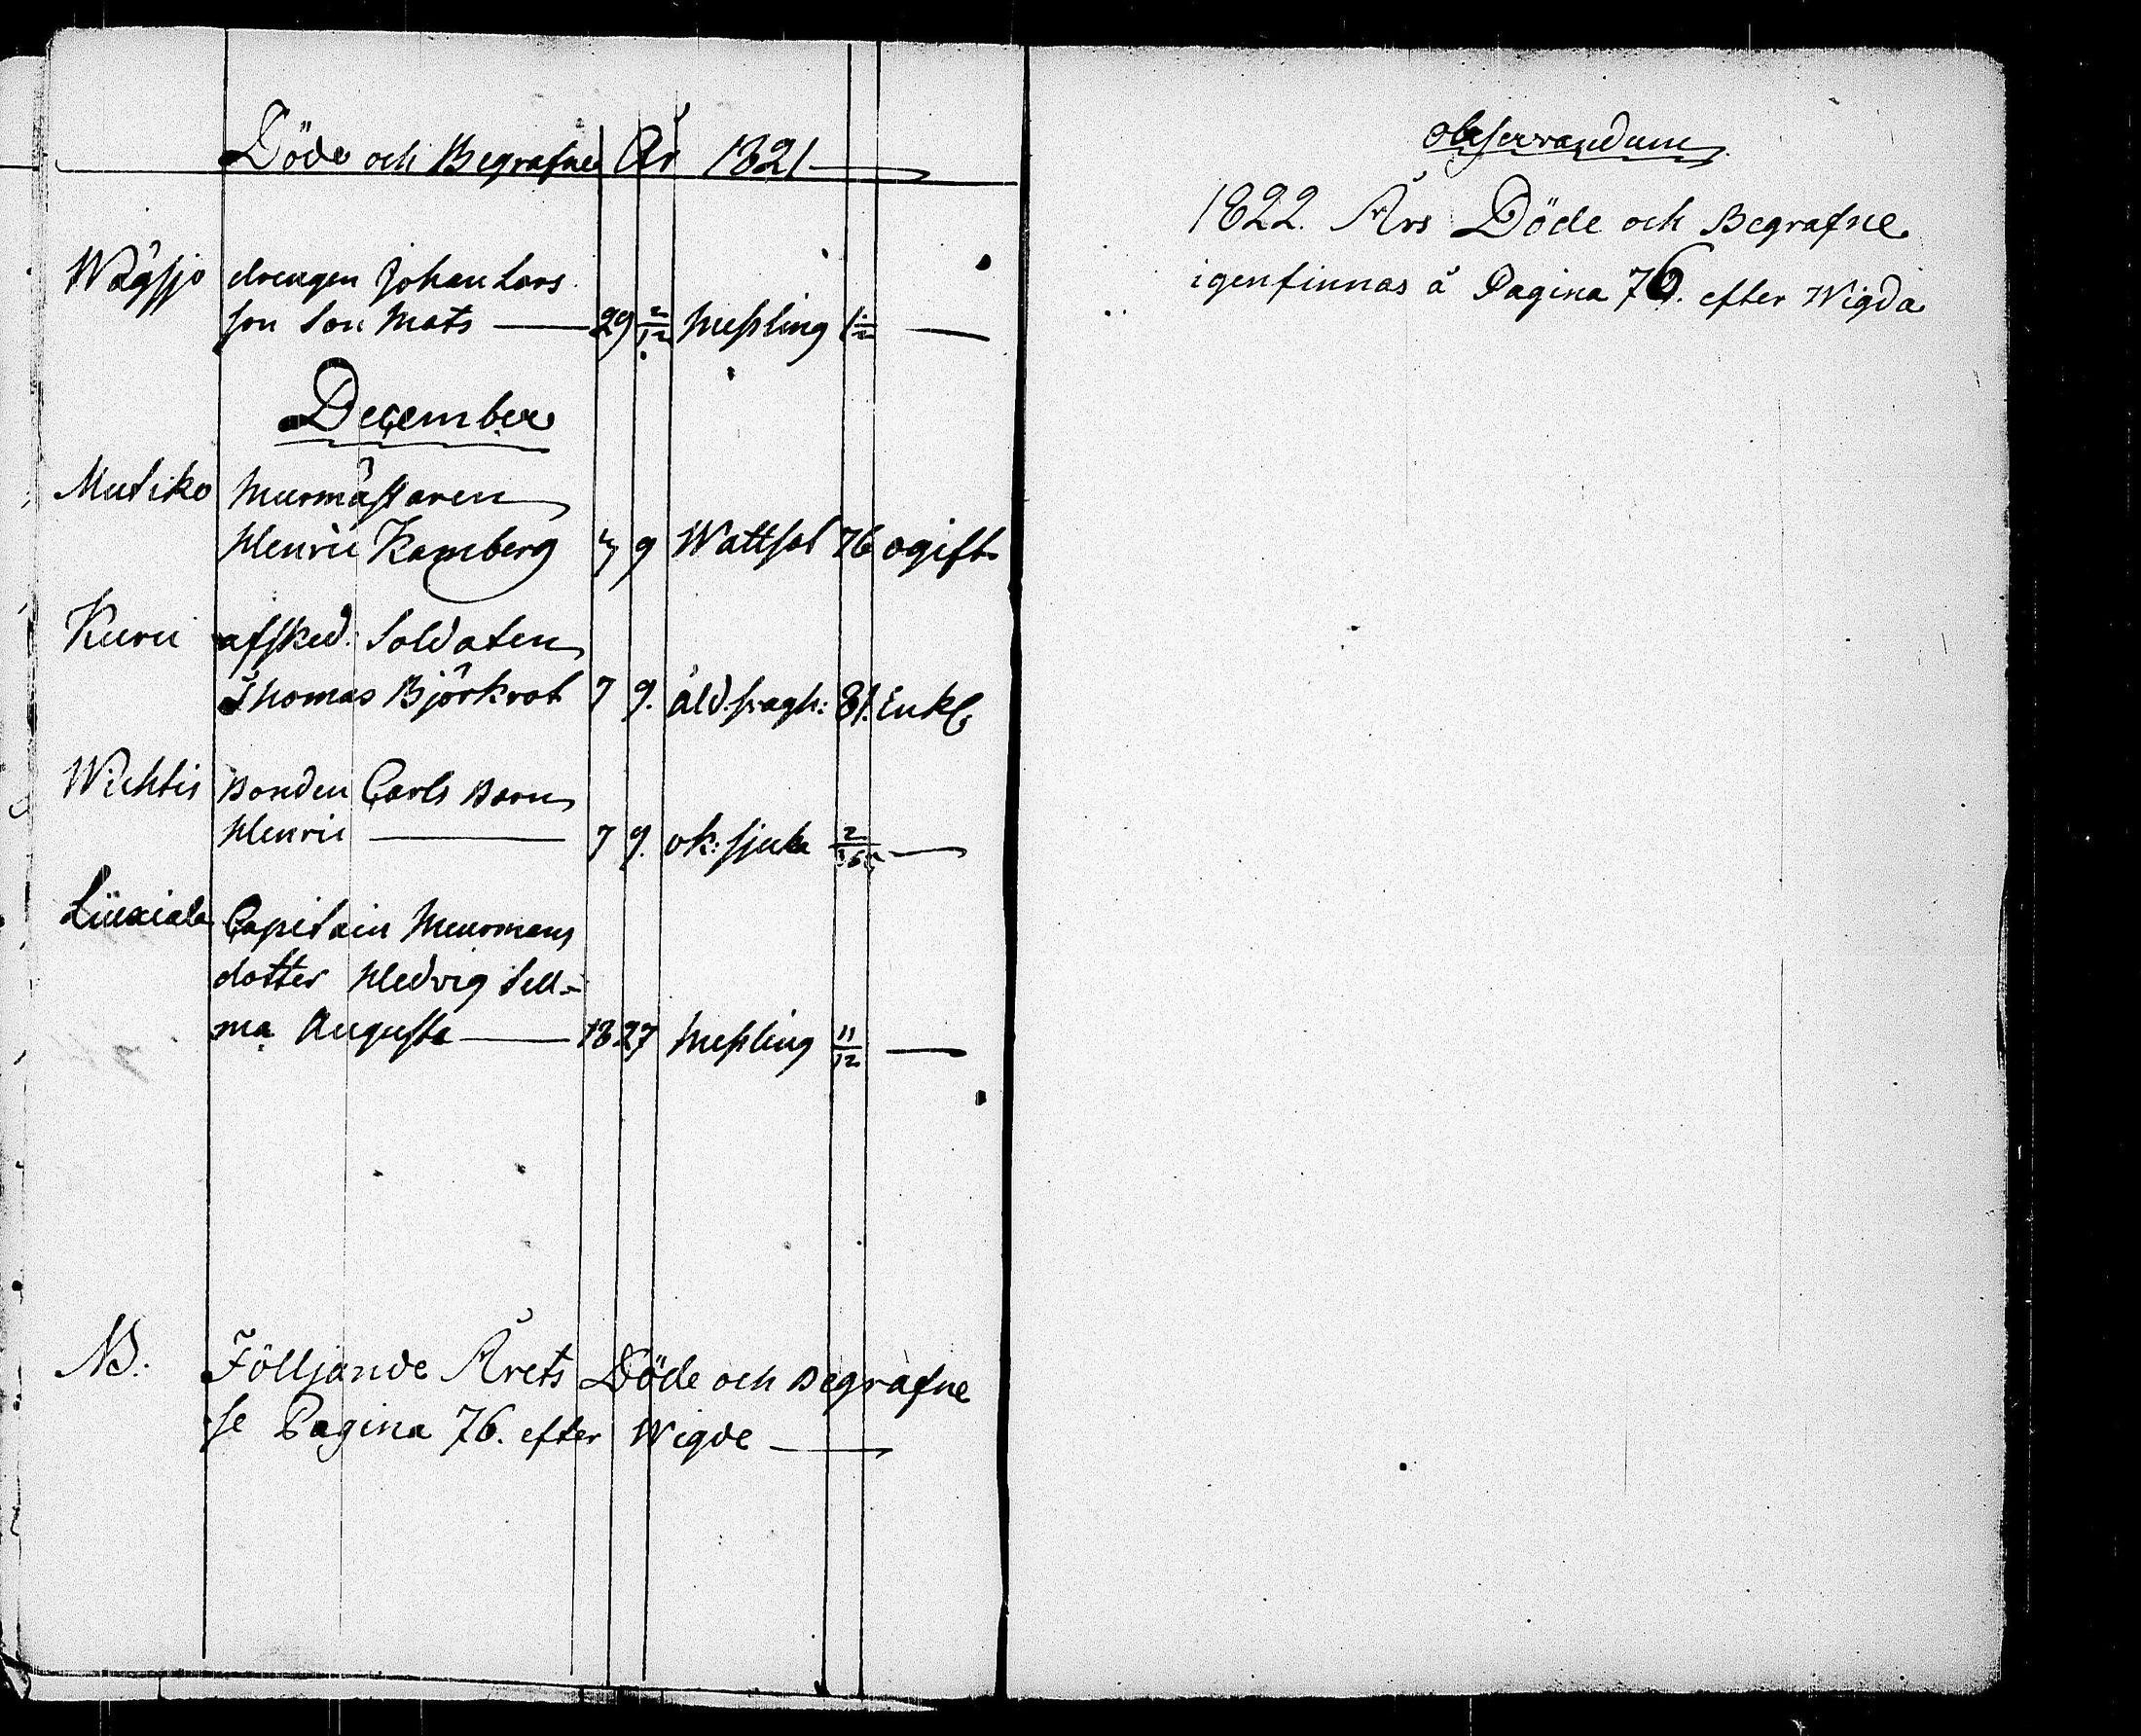 Döde och Begrafne År 1821
Wägsjö drengen Johan Lars
son Son Mats 29 2/12 Messling 1 1/2
December
Mutiko Murmästaren
Henric Kamberg 3 9 Wattsot 76 ogift
Kuru afsked: Soldaten
Thomas Björkrot 7 9. åld. svagh: 81. Enkl
Wichtis Bonden Carls Barn
Henric 7 9. ok: sjuk 2/365
Liuxiala Capitain Meurmans
dotter Hedvig Sell-
ma Augusta 18 27 Messling 11/12
NB. Följande Årets Döde och Begrafne
se Pagina 76. efter Wigde
Observandum
1822. Års Döde och Begrafne
igenfinnas å Pagina 76. efter Wigda